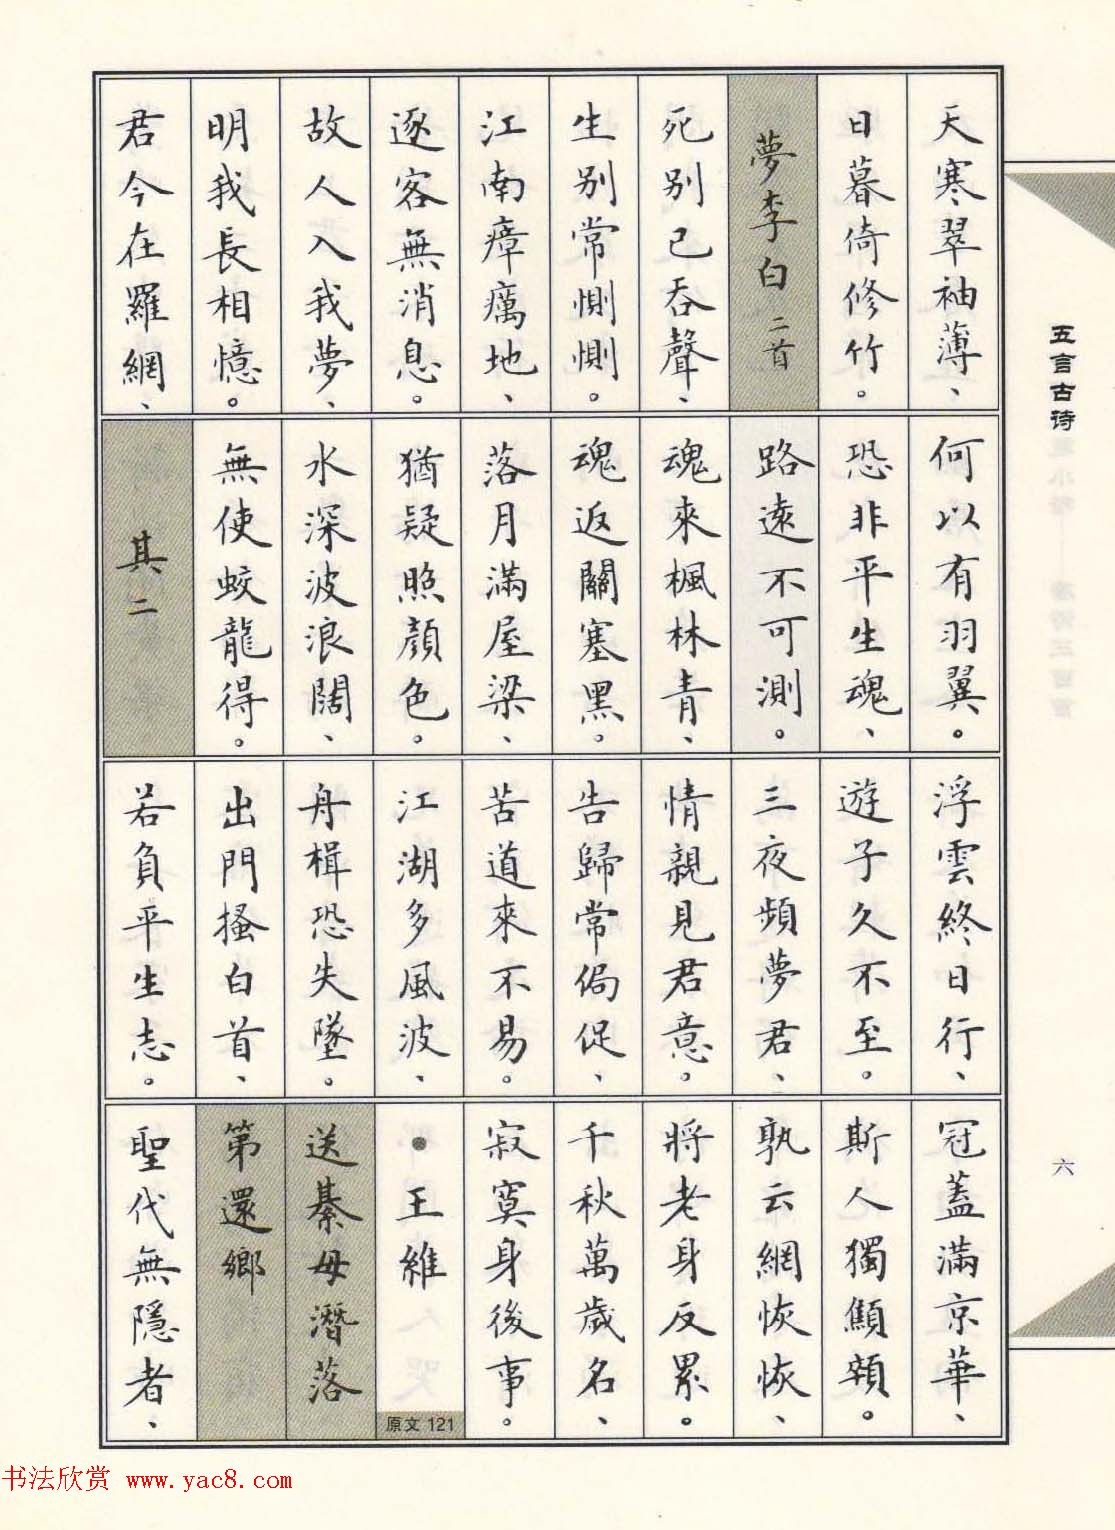 五言古诗
天寒翠袖薄、
日暮倚修竹。
夢李白 二首
死別已吞聲、
生別常惻惻。
江南瘴癘地、
逐客無消息。
故人入我夢、
明我長相憶。
君今在羅網、
何以有羽翼。
恐非平生魂、
路遠不可測。
魂來楓林青、
魂返關塞黑。
落月滿屋梁、
猶疑照顏色。
水深波浪闊、
無使蛟龍得。
其二
浮雲終日行、
遊子久不至。
三夜頻夢君、
情親見君意。
告歸常侷促、
苦道來不易。
江湖多風波、
舟楫恐失墜。
出門搔白首、
若負平生志。
冠蓋滿京華、
斯人獨顦顇。
孰云網恢恢、
將老身反累。
千秋萬歲名、
寂寞身後事。
●王維
原文 121
送綦毋潛落
第還鄉
聖代無隱者、
六
书法欣赏 www.yac8.com